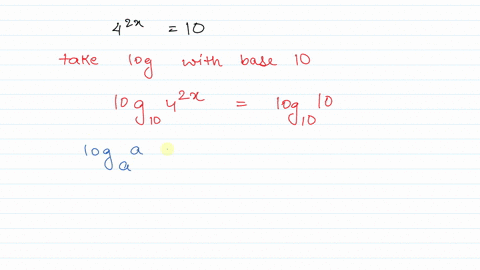 4^{2x} = 10
take log with base 10
log_{10} 4^{2x} = log_{10} 10
log_a a